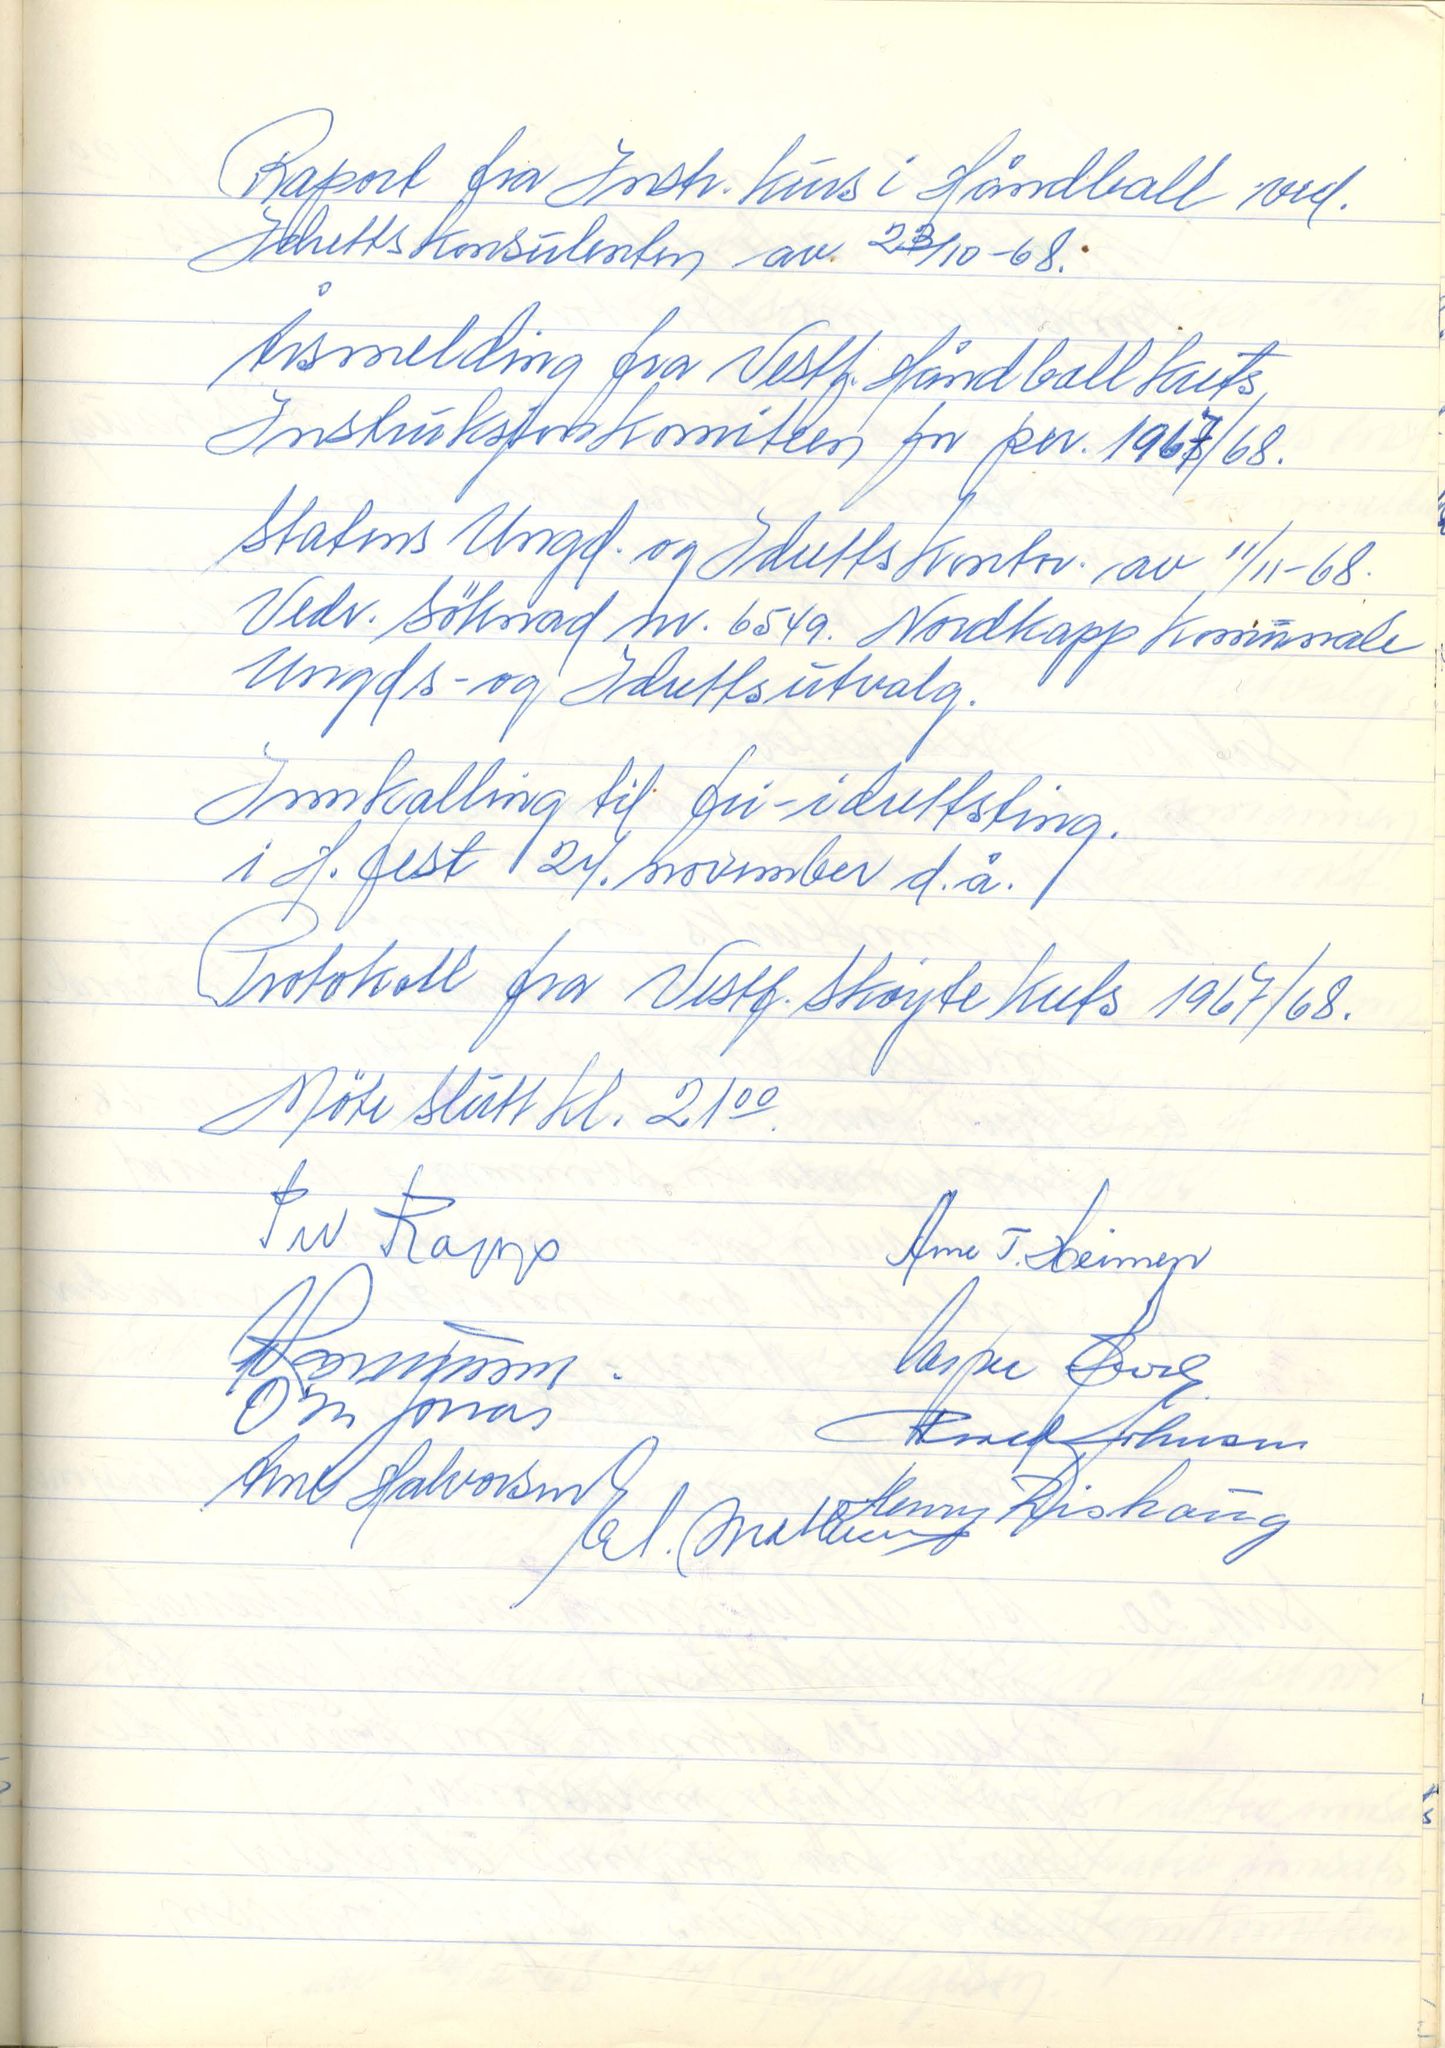 Raport fra Instr. kurs i Håndball ved.
Idrettskonsulenten av 23/10-68.
Årsmelding fra Vestf. Håndballkrets,
Instruksjonskomiteen for per. 1967/68.
Statens Ungd. og Idrettskontor. av 11/11-68.
Vedr. Söknad nr. 6549. Nordkapp Kommunale
Ungds- og Idrettsutvalg.
Innkalling til fri-idrettsting.
i H. fest 24. november d.å.
Protokoll fra Vestf. Skøytekrets 1967/68.
Möte slutt kl. 21⁰⁰.
Per Rapp
Arne T. Heimen
Arne Halvorsen
Henry Diskaug